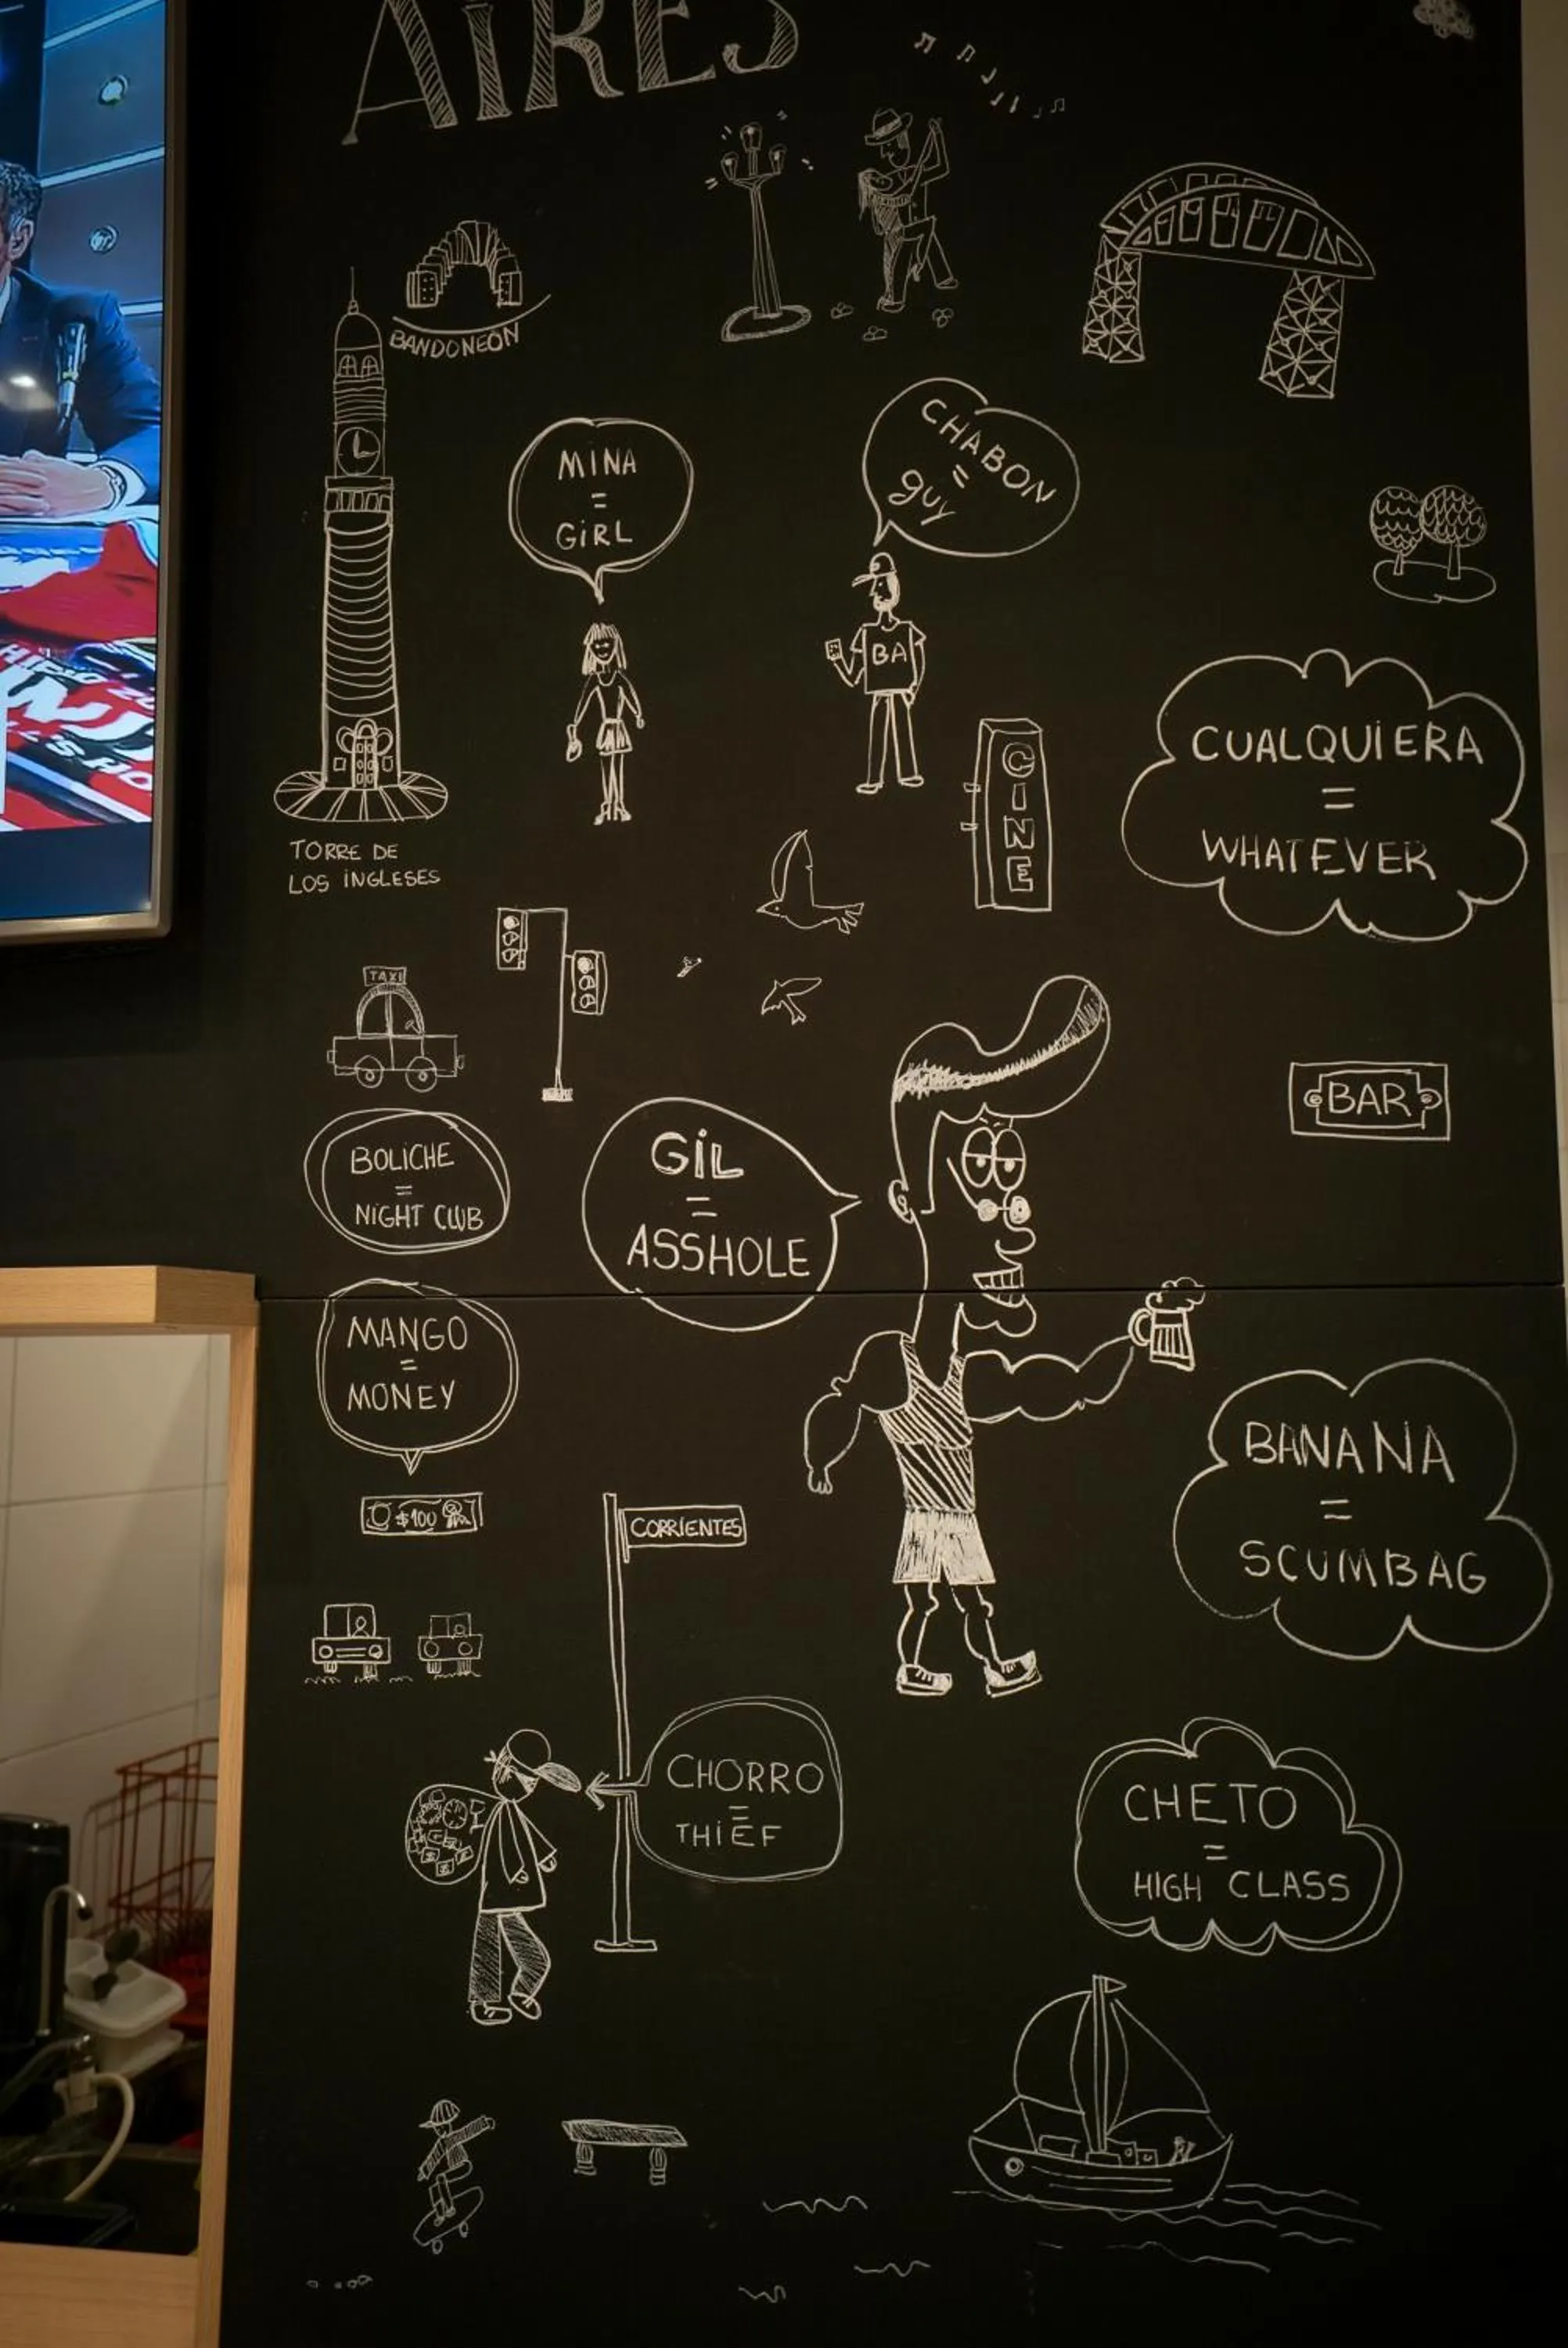 AiRES
BANDONEÓN
MiNA
=
GiRL
CHABON
=
guy
BA
CUALQUiERA
=
WHATEVER
CiNE
TORRE DE
LOS iNGLESES
TAXi
BOLiCHE
=
NiGHT CLUB
GiL
=
ASSHOLE
BAR
MANGO
=
MONEY
$100
CORRiENTES
BANANA
=
SCUMBAG
CHORRO
=
THiEF
CHETO
=
HIGH CLASS